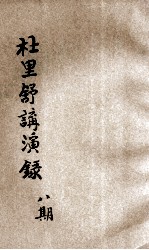 杜里舒講演錄
八期